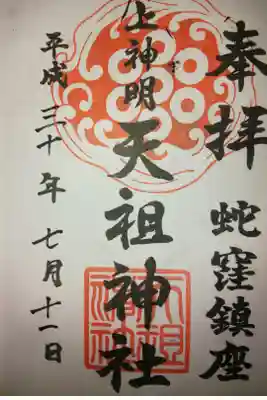 奉拝
蛇窪鎮座
上神明
天祖神社
天祖神社
平成三十年七月十一日